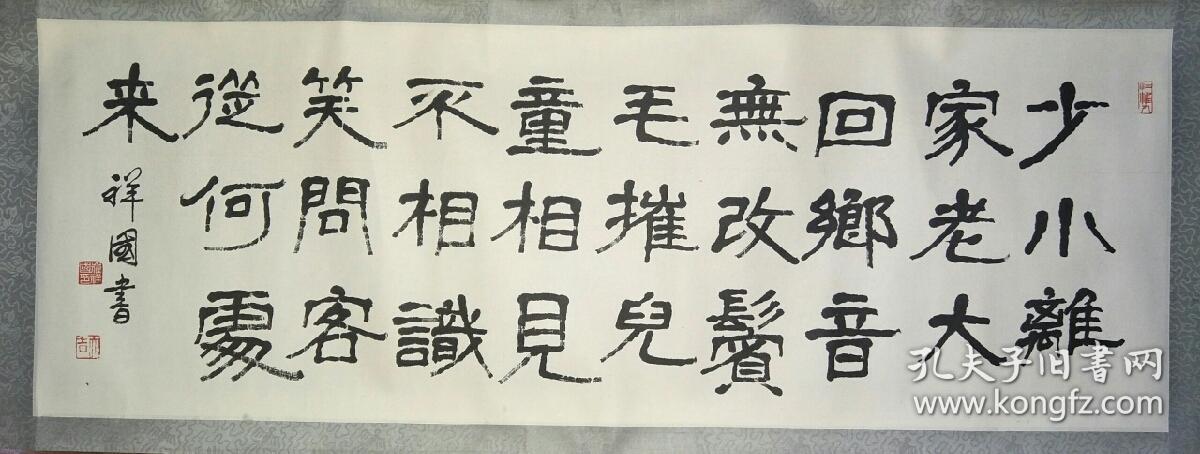 少小離
家老大
回鄉音
無改鬢
毛摧兒
童相見
不相識
笑問客
從何處
来
祥國書
孔夫子旧书网
www.kongfz.com